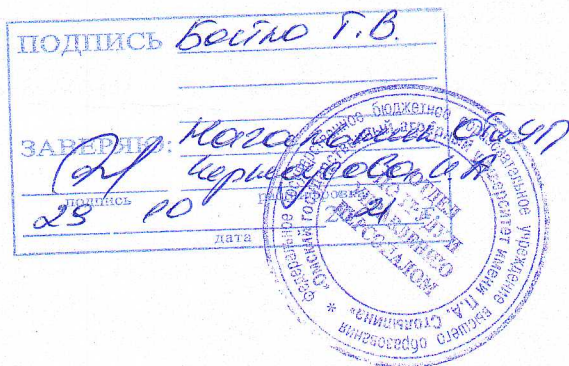 ПОДПИСЬ Бойко Т.В.
ЗАВЕРЯЮ: Начальник ОКиУП
Черноусова
подпись расшифровка
29 10 2021
дата
* Федеральное государственное бюджетное образовательное учреждение высшего образования
«Омский государственный аграрный университет имени П.А. Столыпина»
ОТДЕЛ
КАДРОВ И
УПРАВЛЕНИЯ
ПЕРСОНАЛОМ